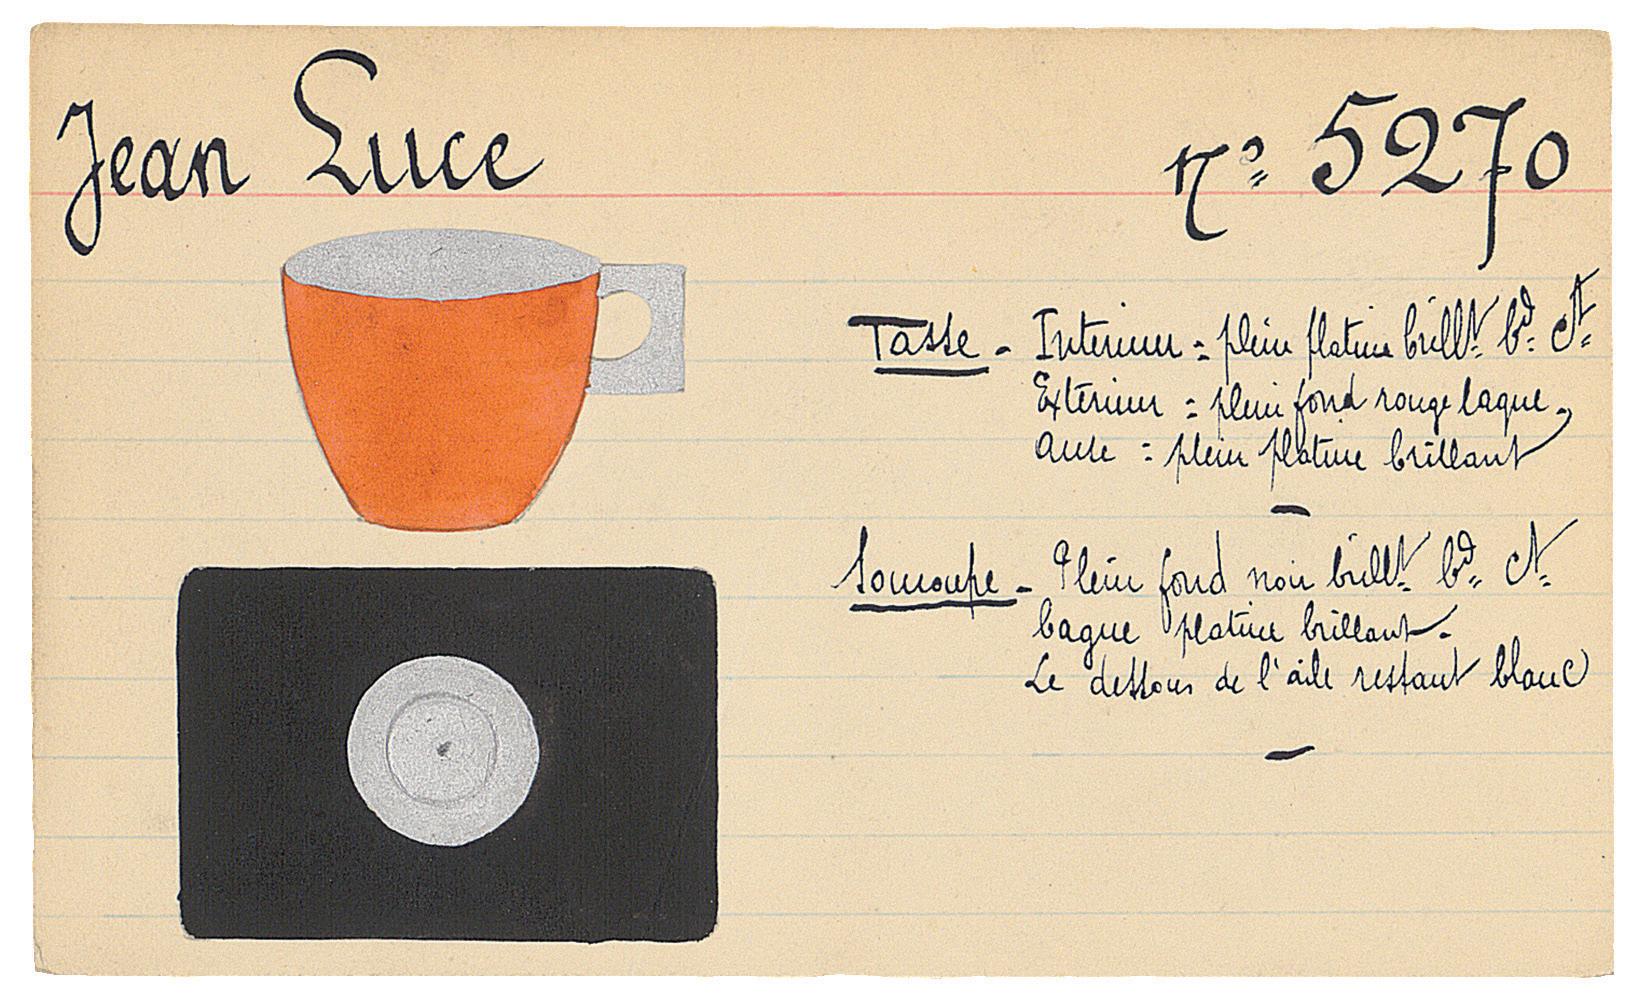 Jean Luce
N° 5270
Tasse - Intérieur = plein platine brillt bd ct
Extérieur = plein fond rouge laque,
Anse = plein platine brillant
Soucoupe - Plein fond noir brillt bd ct
bague platine brillant.
Le dessous de l'aile restant blanc